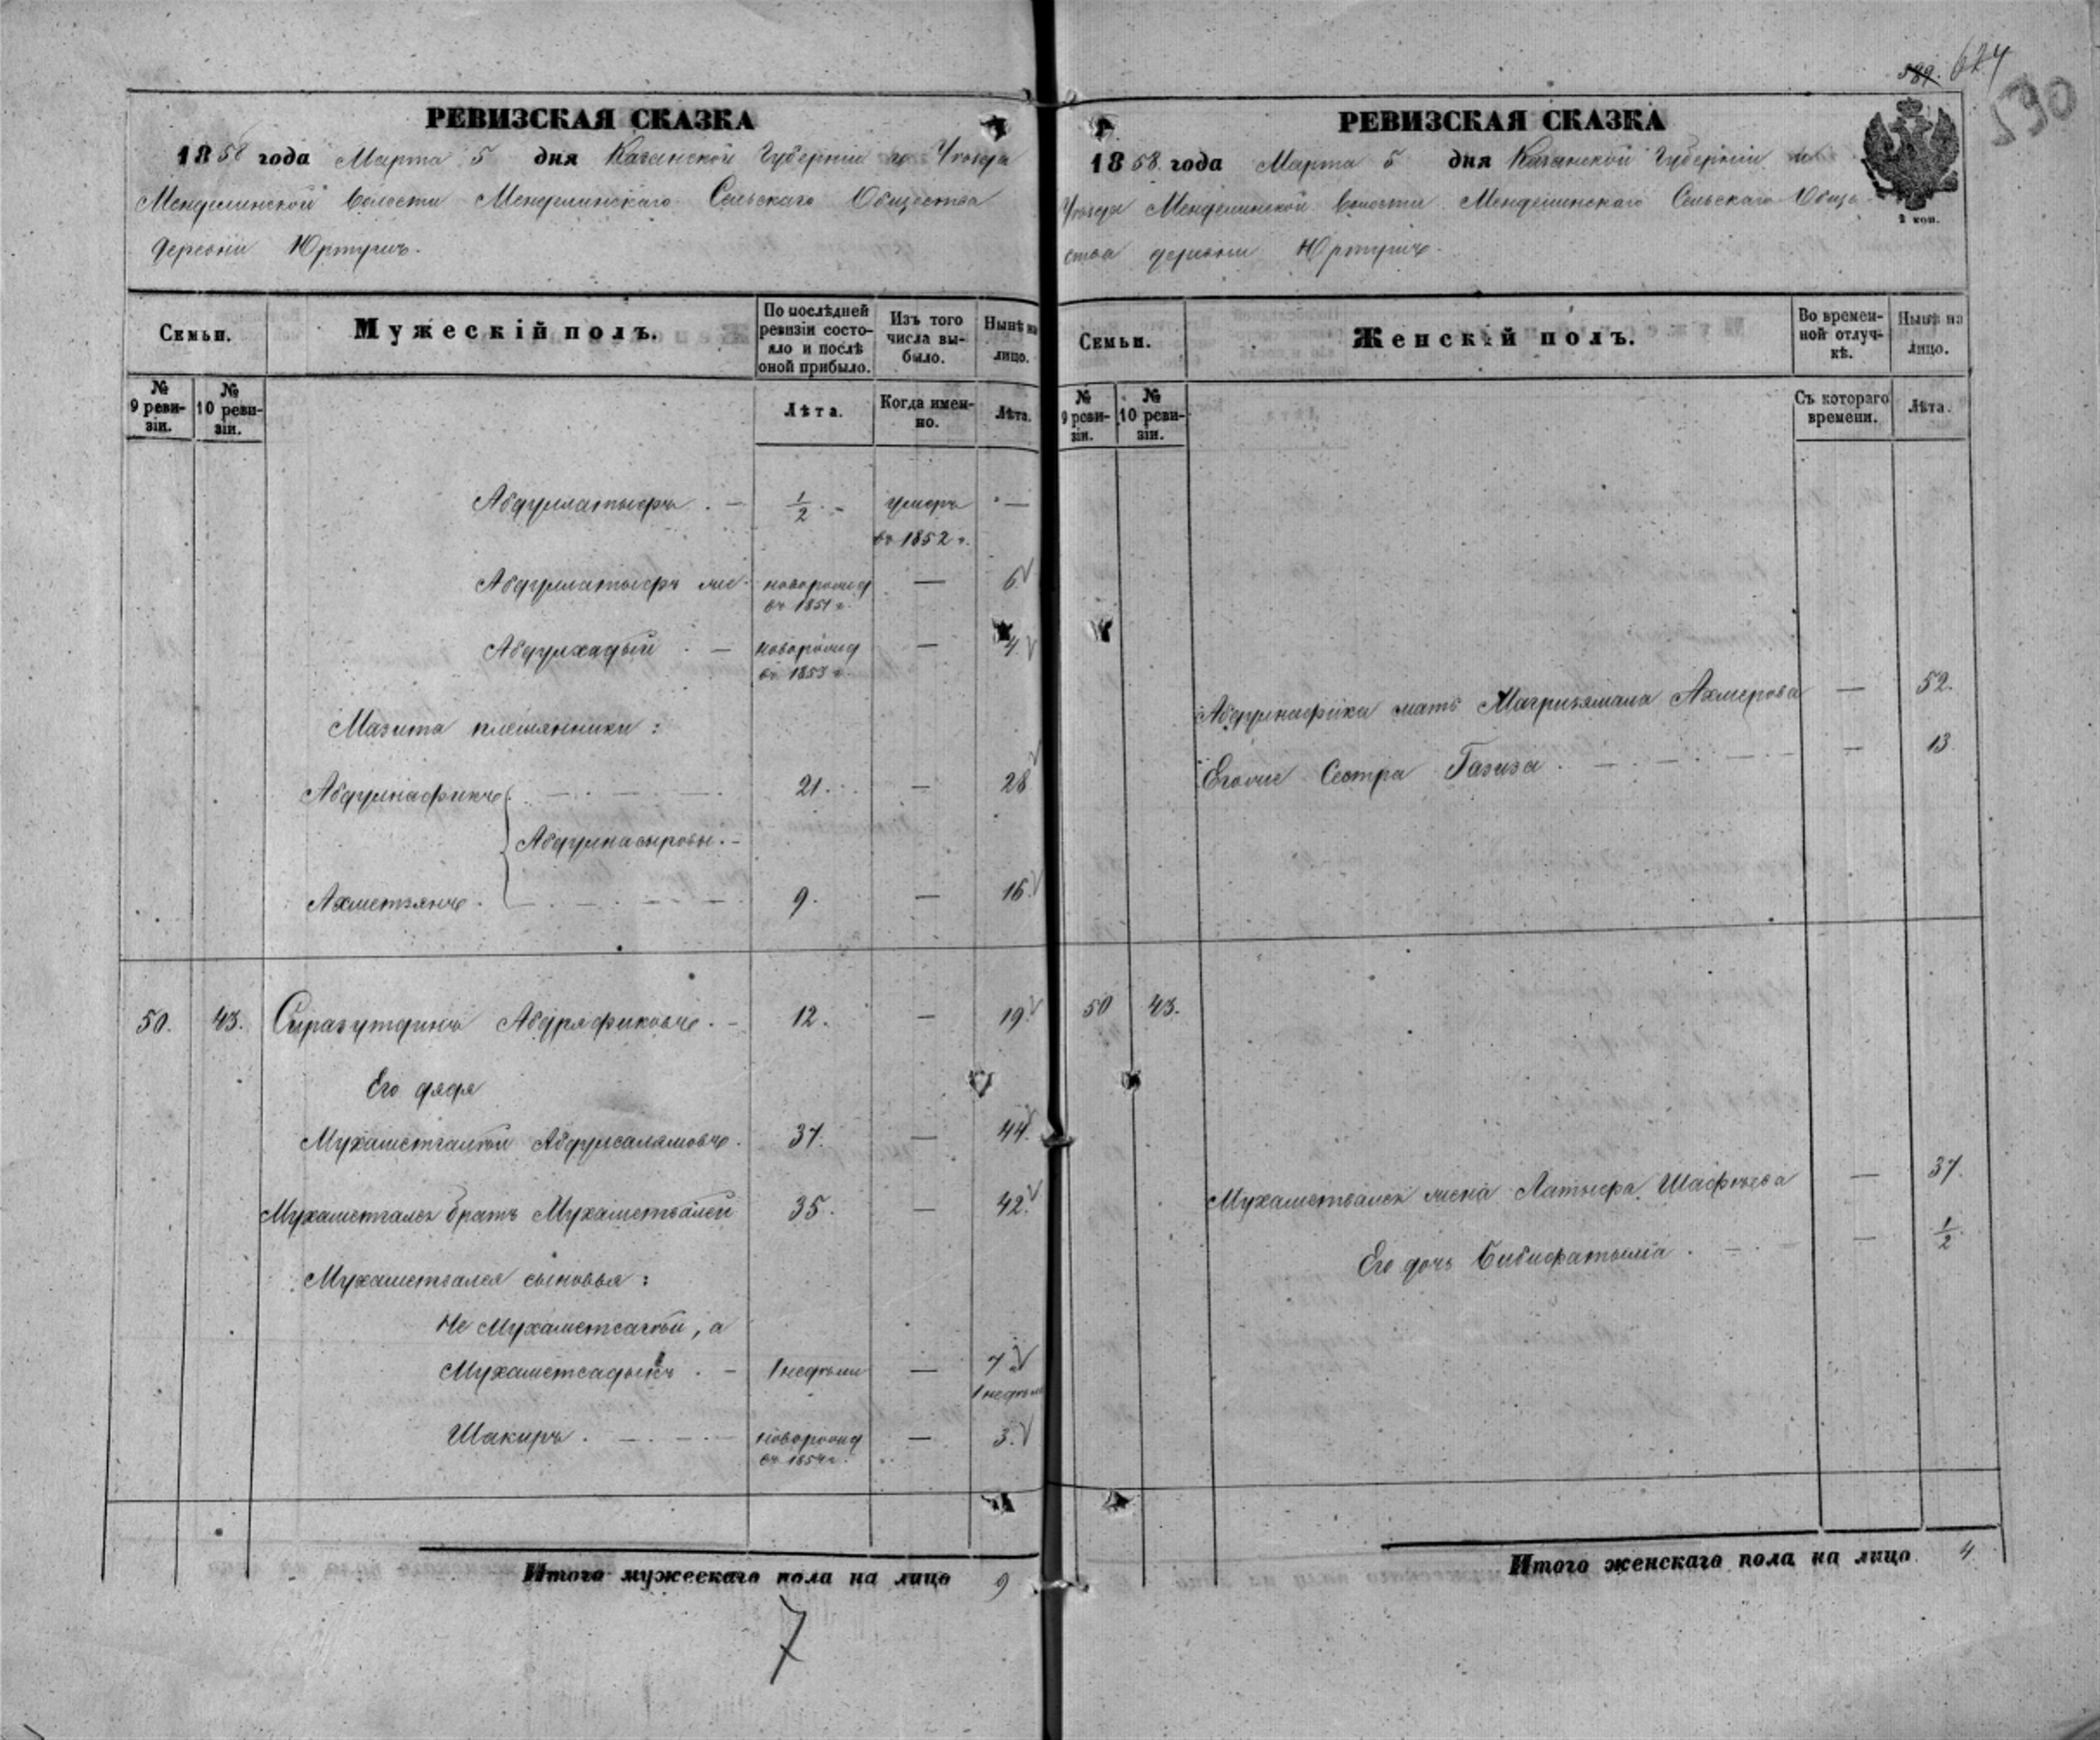 589. 624
590
РЕВИЗСКАЯ СКАЗКА
1858 года Марта 5 дня Казанской Губернии Уезда
Менделинской Волости Менделинскаго Сельскаго Общества
деревни Юртушъ.
Семьи.
Мужескій полъ.
По послѣдней ревизіи состояло и послѣ оной прибыло.
Изъ того числа выбыло.
Нынѣ на лицо.
№ 9 ревизіи.
№ 10 ревизіи.
Лѣта.
Когда именно.
Лѣта.
Абдуллатыфъ . — 1/2 . - умеръ въ 1852 г. —
Абдуллатыфъ же новорожд въ 1851 г. — 6
Абдулхадый . — новорожд въ 1853 г. — 4
Мазита племянники :
Абдулнафикъ 21. — 28
Абдулнасыровы. -
Ахметзянъ. 9. — 16
50. 43. Сиразутдинъ Абдряфиковъ. - 12. — 19
Его дядя
Мухаметгалей Абдулсалямовъ. 37. — 44.
Мухаметгалея братъ Мухаметвалей 35. — 42.
Мухаметгалея сыновья :
Не Мухаметсагтый, а
Мухаметсадыкъ . - 1 недѣли — 7 1 недѣли
Шакиръ . — новорожд въ 1854 г. — 3.
Итого мужескаго пола на лицо 9
7
РЕВИЗСКАЯ СКАЗКА
1858 года Марта 5 дня Казанской Губерніи
Уезда Менделинской Волости Менделинскаго Сельскаго Обще-
ства деревни Юртушъ.
2 коп.
Семьи.
Женскій полъ.
Во временной отлучкѣ.
Нынѣ на лицо.
№ 9 ревизіи.
№ 10 ревизіи.
Съ котораго времени.
Лѣта.
Абдулнафика мать Магризямала Ахмерова — 52.
Егоже Сестра Газиза . — 13
50 43.
Мухаметвалея жена Латыфа Шафѣева — 37.
Его дочь Бибифатыма . — 1/2
Итого женскаго пола на лицо 4